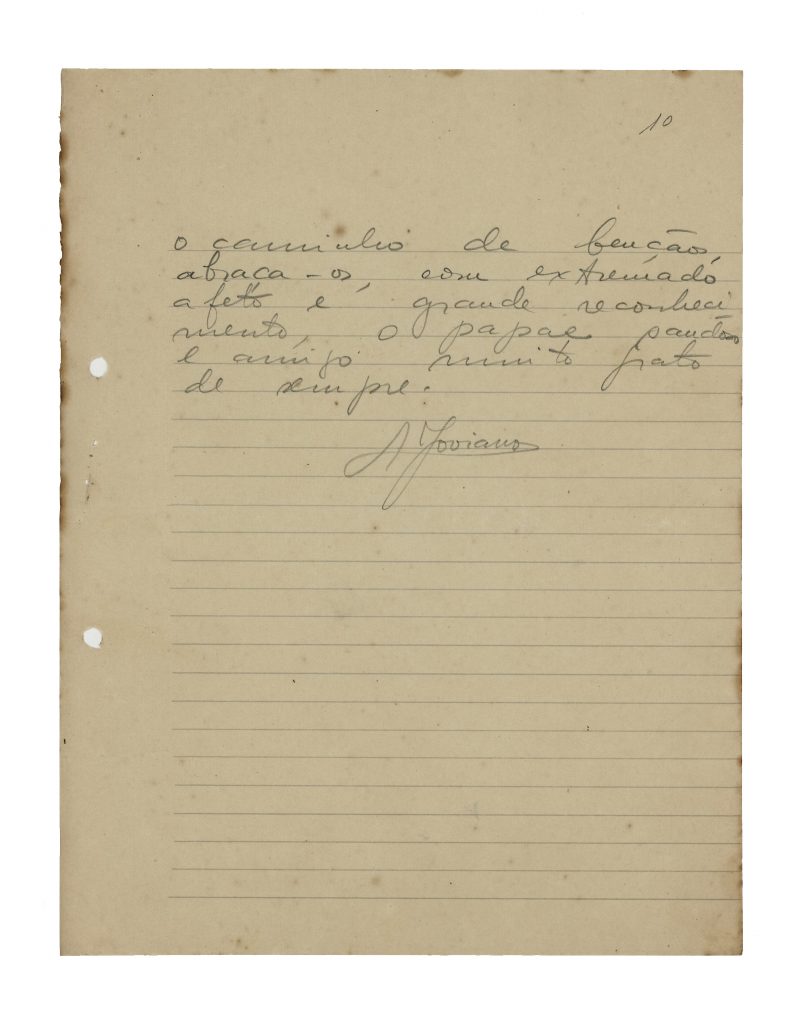 10
o caminho de bençãos,
abraça-os, com extremado
afeto e grande reconheci
mento, o papae saudoso
e amigo muito grato
de sempre.
A Joviano